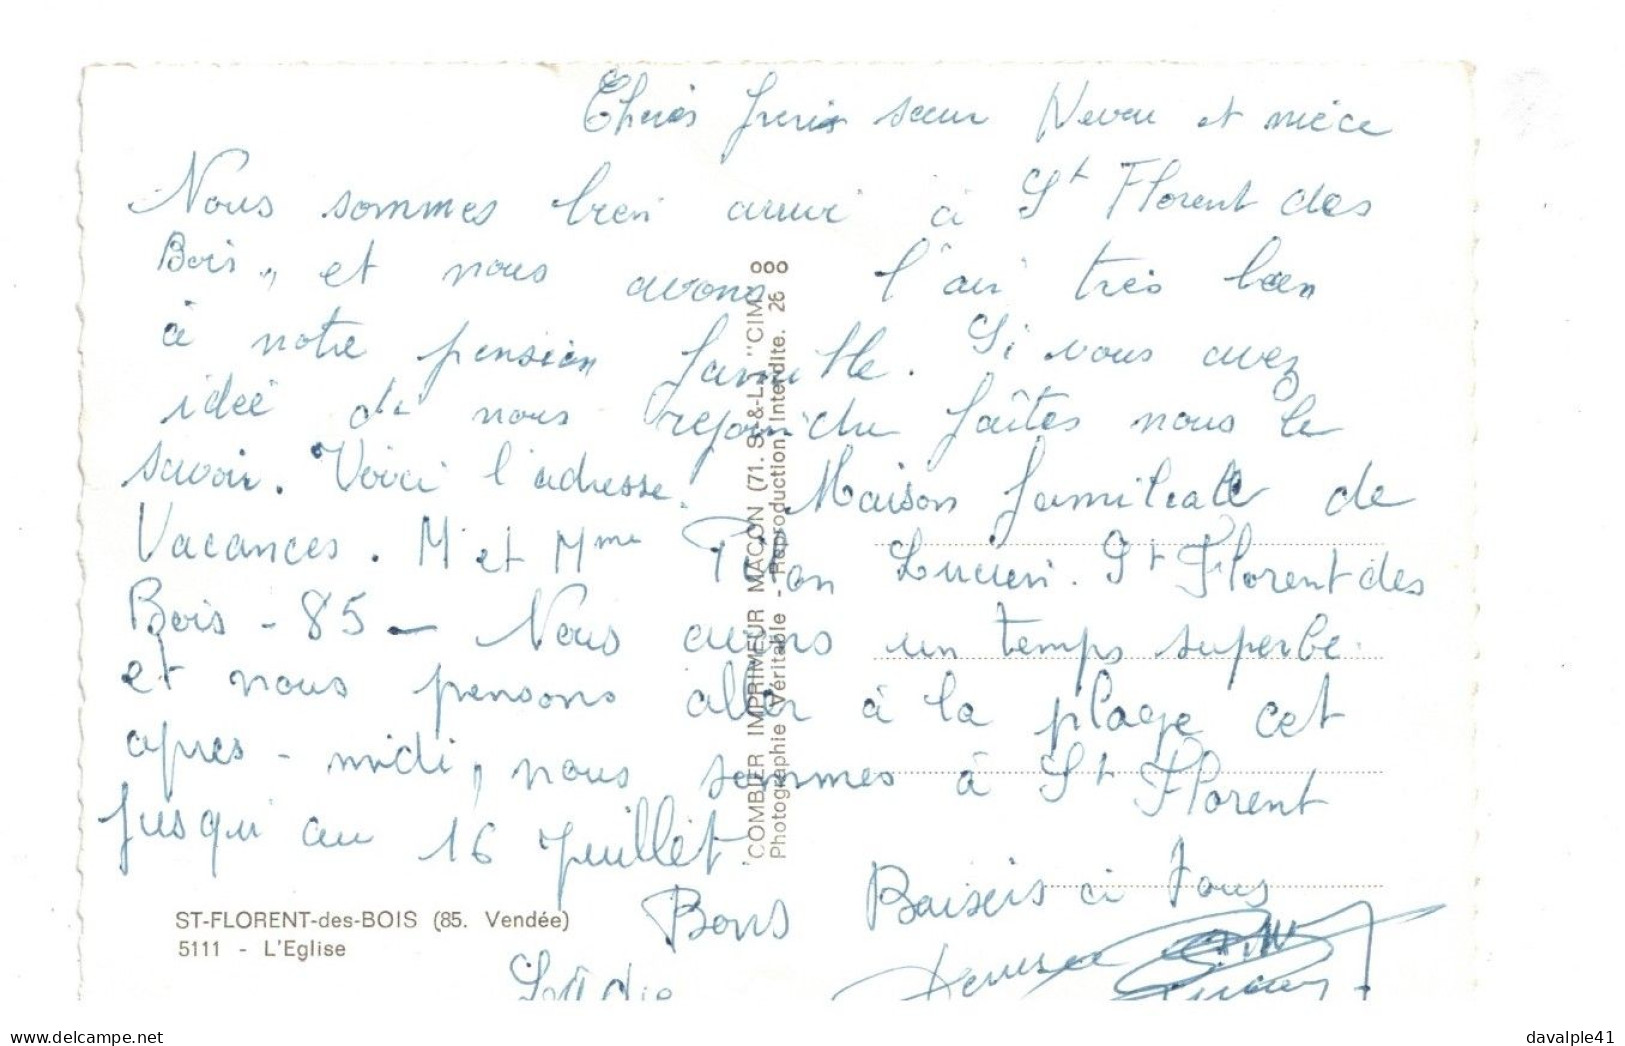 Chers frère sœur Neveu et nièce
Nous sommes bien arrivé à St Florent des
Bois, et nous avons l'air très bien
à notre pension famille. Si vous avez
idée de nous rejoindre faîtes nous le
savoir. Voici l'adresse. Maison familiale de
Vacances. M et Mme Lucien. St Florent des
Bois - 85 - Nous avons un temps superbe.
et nous pensons aller à la plage cet
après-midi, nous sommes à St Florent
jusqu'au 16 Juillet
Bons Baisers à Tous
COMBIER IMPRIMEUR MACON (71. S-&-L.) "CIM"
Photographie Véritable - Reproduction Interdite. 26
ST-FLORENT-des-BOIS (85. Vendée)
5111 - L'Eglise
www.delcampe.net
davalple41